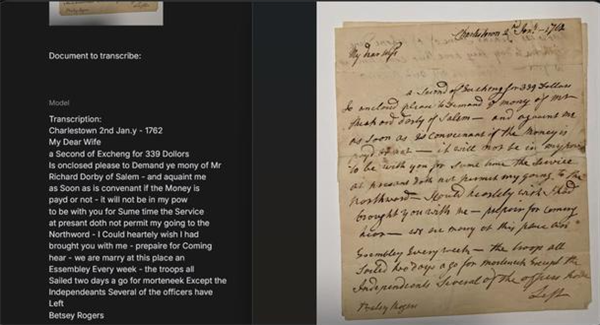 Document to transcribe:
Model
Transcription:
Charlestown 2nd Jan.y - 1762
My Dear Wife
a Second of Excheng for 339 Dollors
Is onclosed please to Demand ye mony of Mr
Richard Dorby of Salem - and aquaint me
as Soon as is convenant if the Money is
payd or not - it will not be in my pow
to be with you for Sume time the Service
at presant doth not permit my going to the
Northword - I Could heartely wish I had
brought you with me - prepaire for Coming
hear - we are marry at this place an
Essembley Every week - the troops all
Sailed two days a go for morteneek Except the
Independeants Several of the officers have
Left
Betsey Rogers
Charlestown 2d Jany - 1762
My Dear Wife
a Second of Excheng for 339 Dollors
Is enclosed please to Demand ye mony of Mr
Dorby of Salem - and aquaint me
as Soon as is Convenant if the Money is
payd or not - it will not be in my pow
to be with you for Sume time the Service
at presant doth not permit my going to the
Northword - I Could heartely wish I had
brought you with me - prepair for Coming
hear - we are mary at this place
Essembley Every week - the troops all
Sailed two days a go for morteneek Except the
Independents Several of the officers have
Left
Betsey Rogers